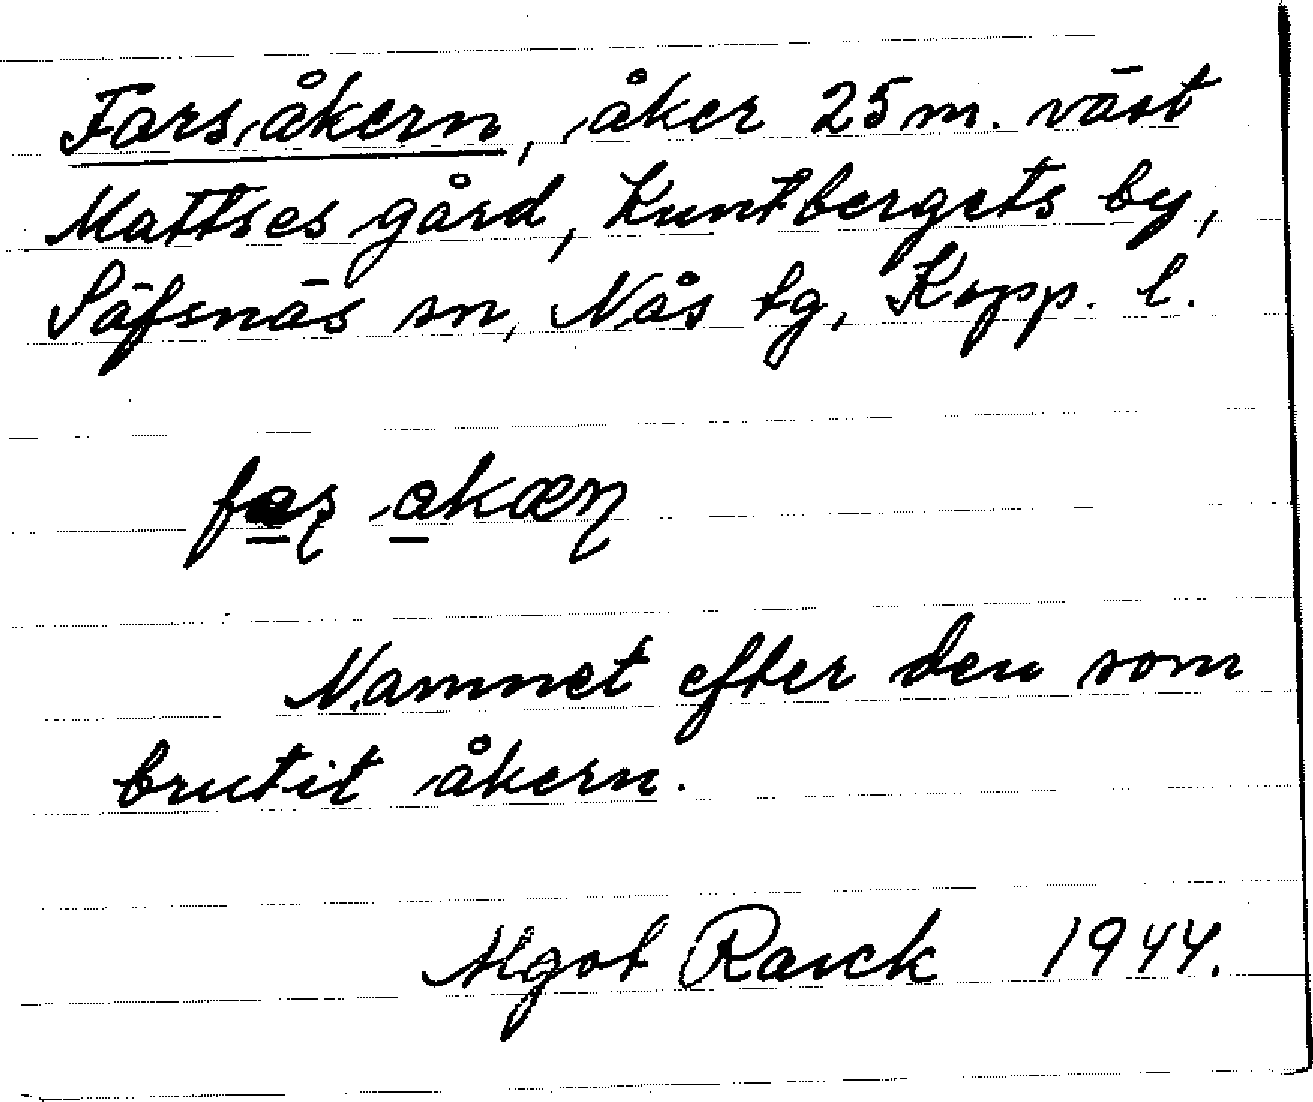 Farsåkern, åker 25 m. väst
Mattses gård, Kuntbergets by,
Säfsnäs sn, Nås tg, Kopp. l.
akæn
Namnet efter den som
brutit åkern.
Algot Rauck 1944.